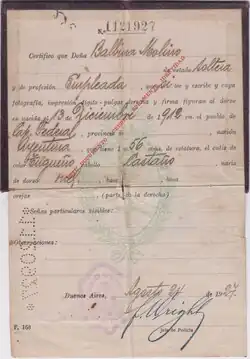 N. 1121927
Certifico que Doña Balbina Molino
de estado Soltera
y de profesión Empleada sabe leer y escribir y cuya
fotografía, impresión dígito - pulgar derecha y firma figuran al dorso
es nacida el de Diciembre de 1912 en el pueblo de
Cap. Federal provincia nación
Argentina que tiene 1 56 mts. de estatura, el cutis
Trigueño cabello Castaño nariz
de dorso base boca
orejas (parte de la derecha)
Señas particulares visibles:
Observaciones:
Buenos Aires, Agosto 24 de 1927.
F. Wright
Jefe de Policía
F. 168
1121927